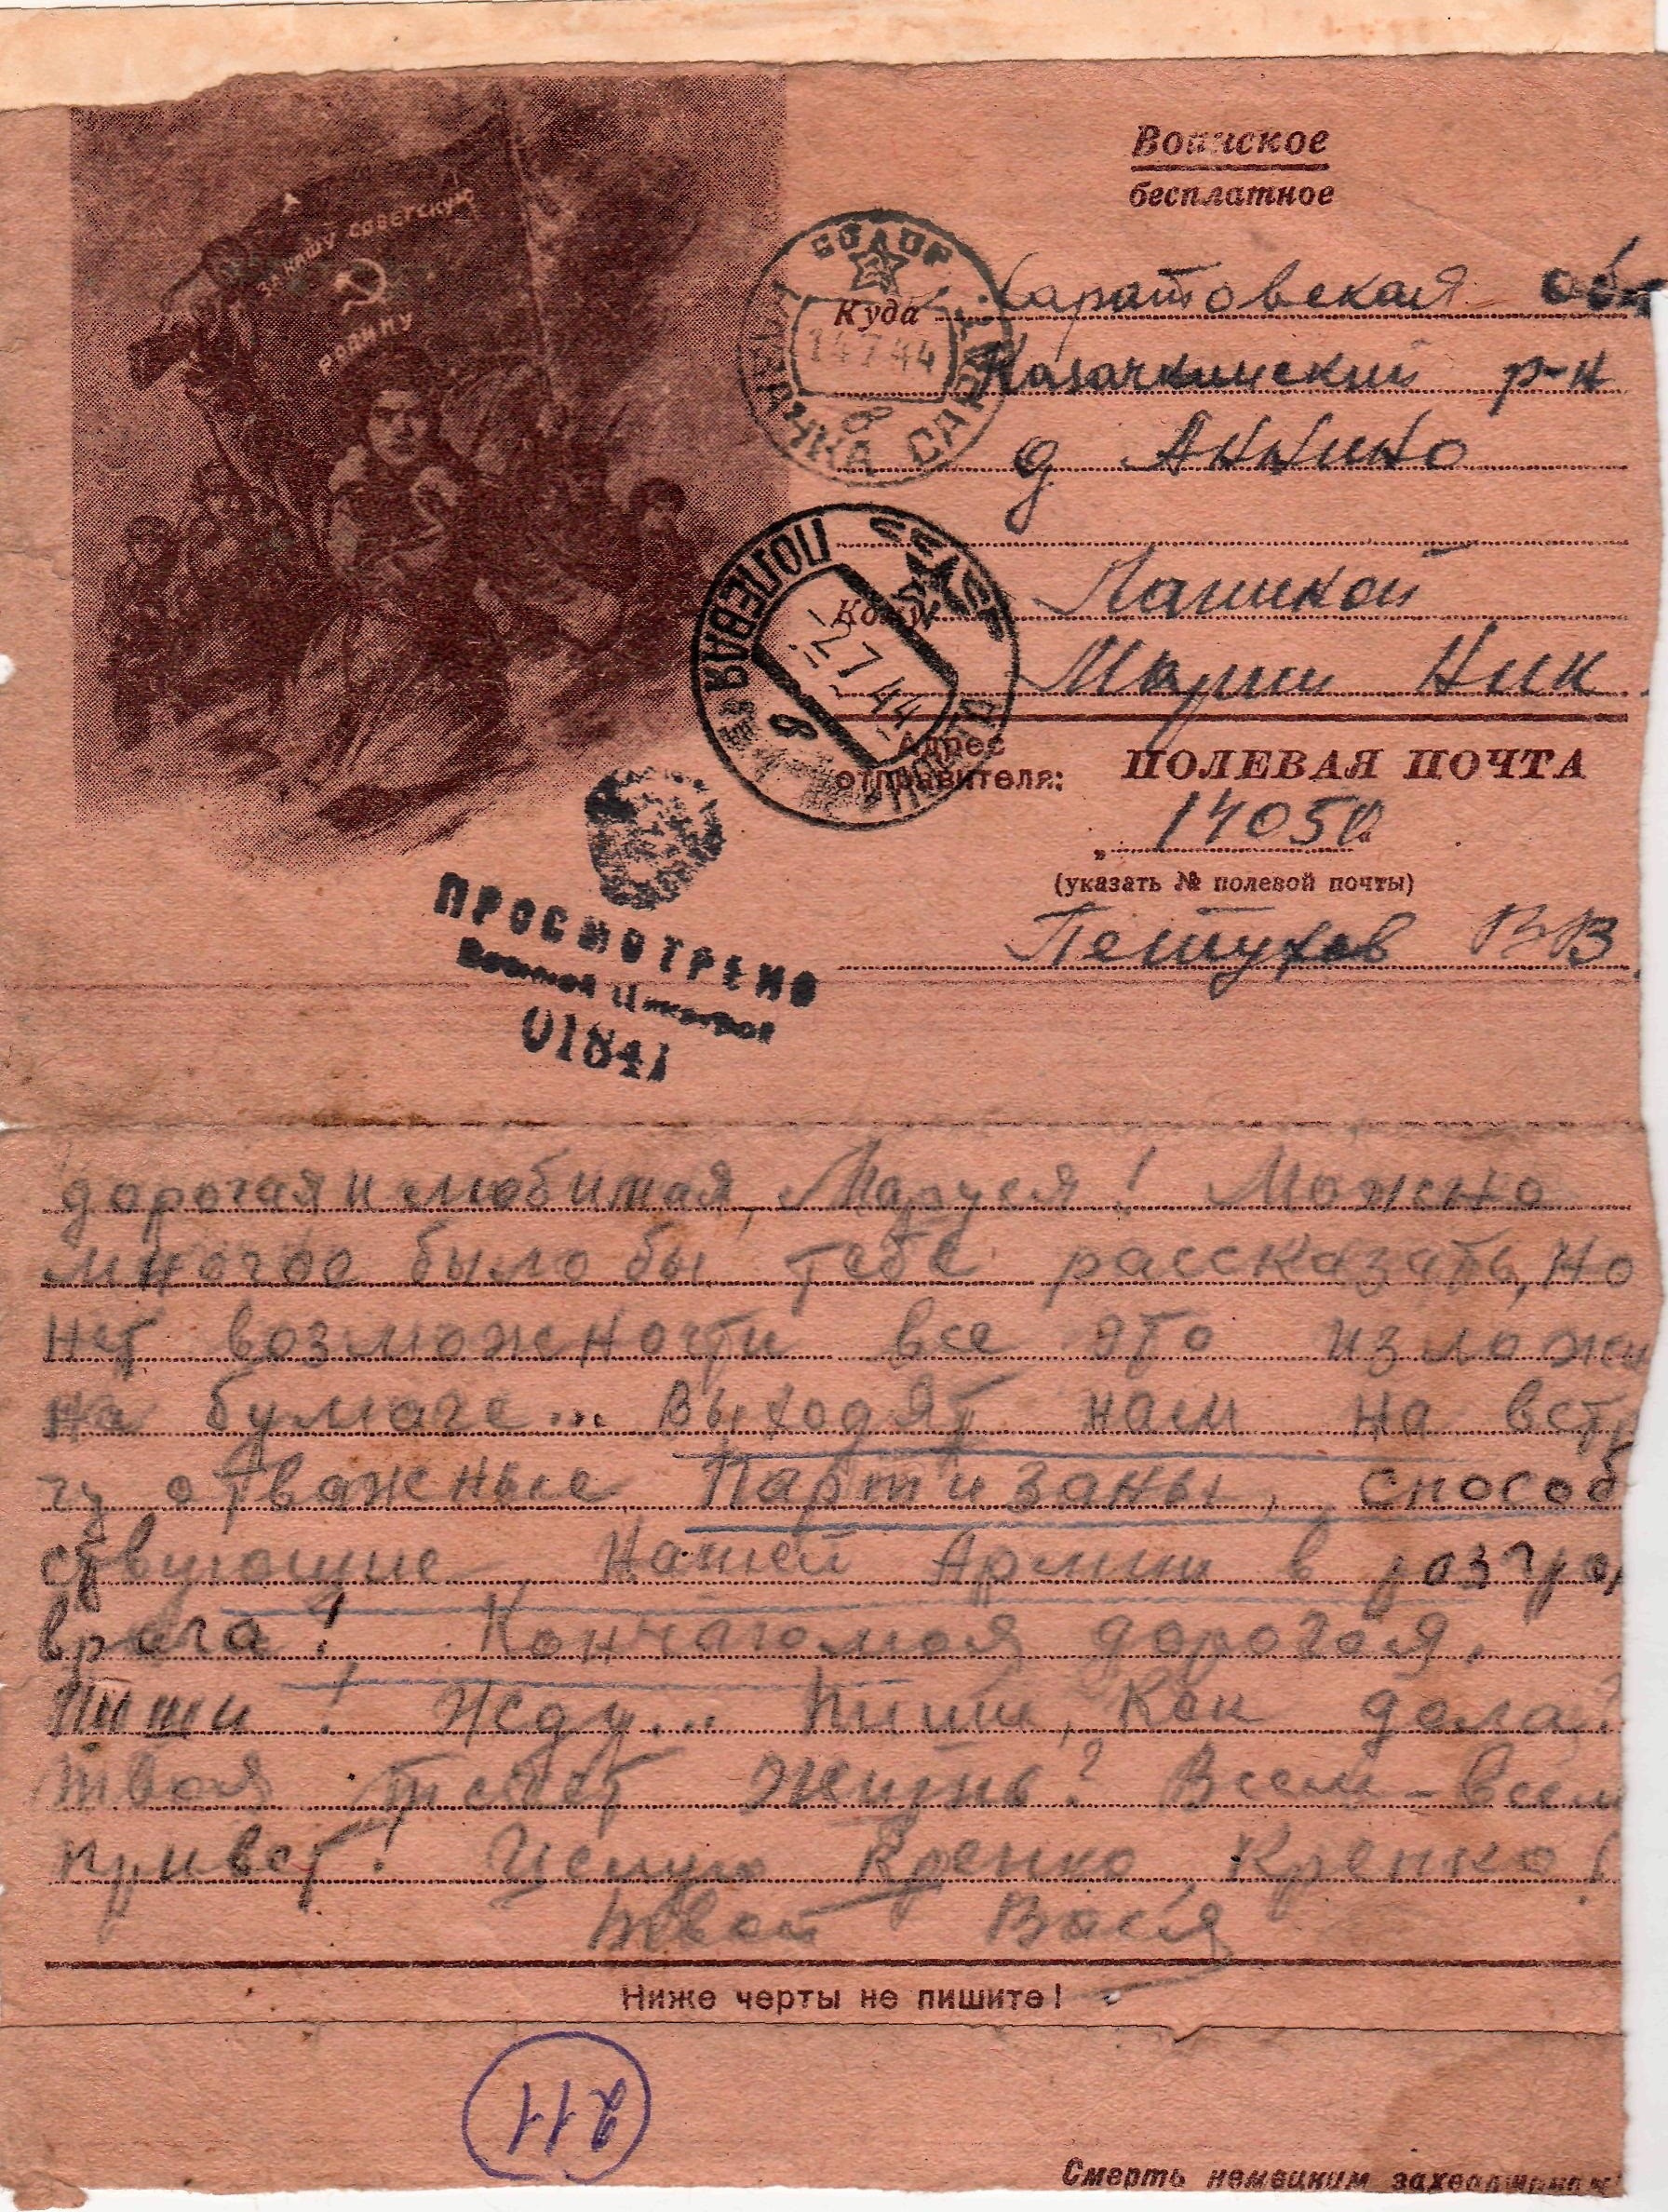 ЗА НАШУ СОВЕТСКУЮ
РОДИНУ
Воинское
бесплатное
Куда Саратовская обл
Казачкинский р-н
д Аннино
14 7 44
САРАТ.
Кому Лашкой
Марии Ник.
ПОЛЕВАЯ
2 7 44
Адрес
отправителя:
ПОЛЕВАЯ ПОЧТА
„ 14050 "
(указать № полевой почты)
Петухов ВВ.
ПРОСМОТРЕНО
Военной Цензурой
01841
дорогая и любимая, Маруся! Можно
многое было бы тебе рассказать, но
нет возможности все это изложи
на бумаге... Выходят нам на встр
чу отважные Партизаны, способ
ствующие Нашей Армии в разгро
врага! Кончаю моя дорогая.
Пиши! Жду... Пиши, Как дела?
твоя течет жизнь? Всем-всем
привет! Целую Крепко Крепко!
Твой Вася
Ниже черты не пишите!
211
Смерть немецким захватчикам!